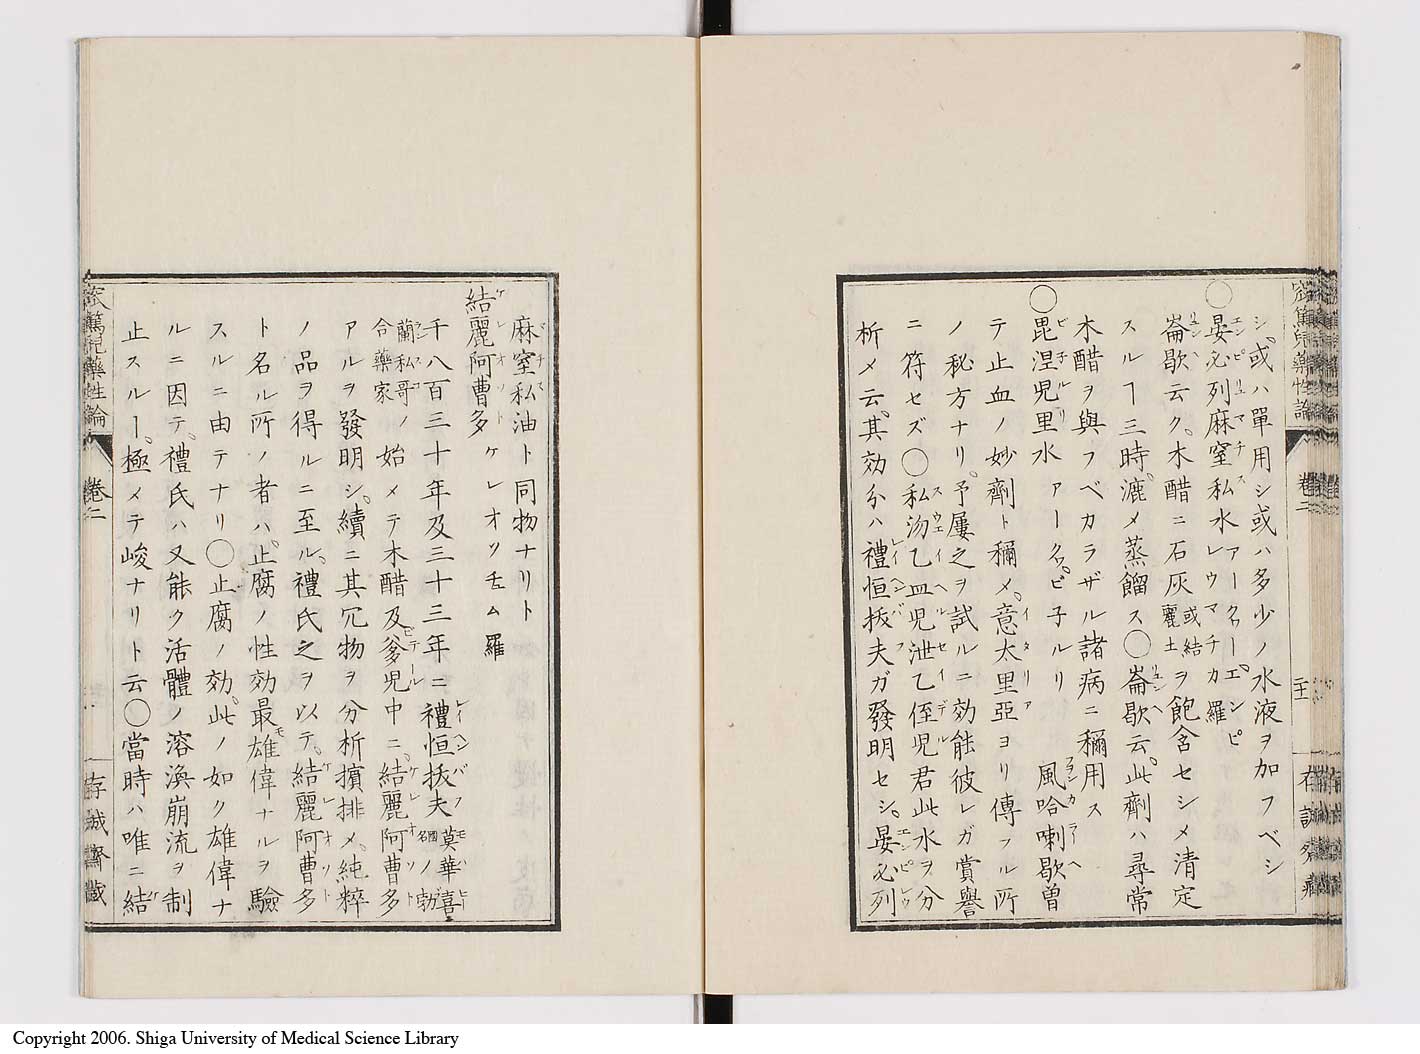 窊篤兒藥性論
卷二
シ或ハ單用シ或ハ多少ノ水液ヲ加フベシ
○晏必列麻窒私水 アークゥー。エンピレウマチカ 羅
崙歇云ク。木醋ニ石灰 或結麗土 ヲ飽含セシメ清定
スルヿ三時。漉メ蒸餾ス○崙歇云。此劑ハ尋常
木醋ヲ與フベカラザル諸病ニ稱用ス
○毘涅児里水 アークゥ。ビ子ルリ 風哈喇歇曽
テ止血ノ妙劑ト稱メ。意太里亞ヨリ傳フル所
ノ秘方ナリ。予屢之ヲ試ルニ効能彼レガ賞譽
ニ符セズ○私沕乙血児泄乙侄児君此水ヲ分
析メ云。其効分ハ禮恒拔夫ガ發明セシ。晏必列
麻窒私油ト同物ナリト
結麗阿曹多 ケレオソヂム 羅
千八百三十年及三十三年ニ禮恒拔夫 名國 莫華禧
蘭私哥ノ 合藥家 始メテ木醋及爹児中ニ。結麗阿曹多
アルヲ發明シ。續ニ其冗物ヲ分析擯排メ。純粹
ノ品ヲ得ルニ至ル。禮氏之ヲ以テ。結麗阿曹多
ト名ル所ノ者ハ。止腐ノ性効最モ雄偉ナルヲ驗
スルニ由テナリ○止腐ノ効。此ノ如ク雄偉ナ
ルニ因テ。禮氏ハ又能ク活體ノ溶渙崩流ヲ制
止スルヿ。極メテ峻ナリト云○當時ハ唯ニ結
窊篤兒藥性論
卷二
存誠齋藏
Copyright 2006. Shiga University of Medical Science Library